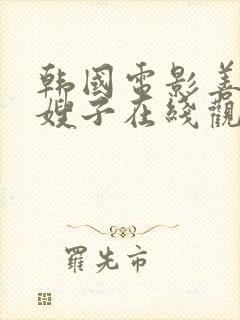 韩國电影善
嫂子在线觀
羅先市